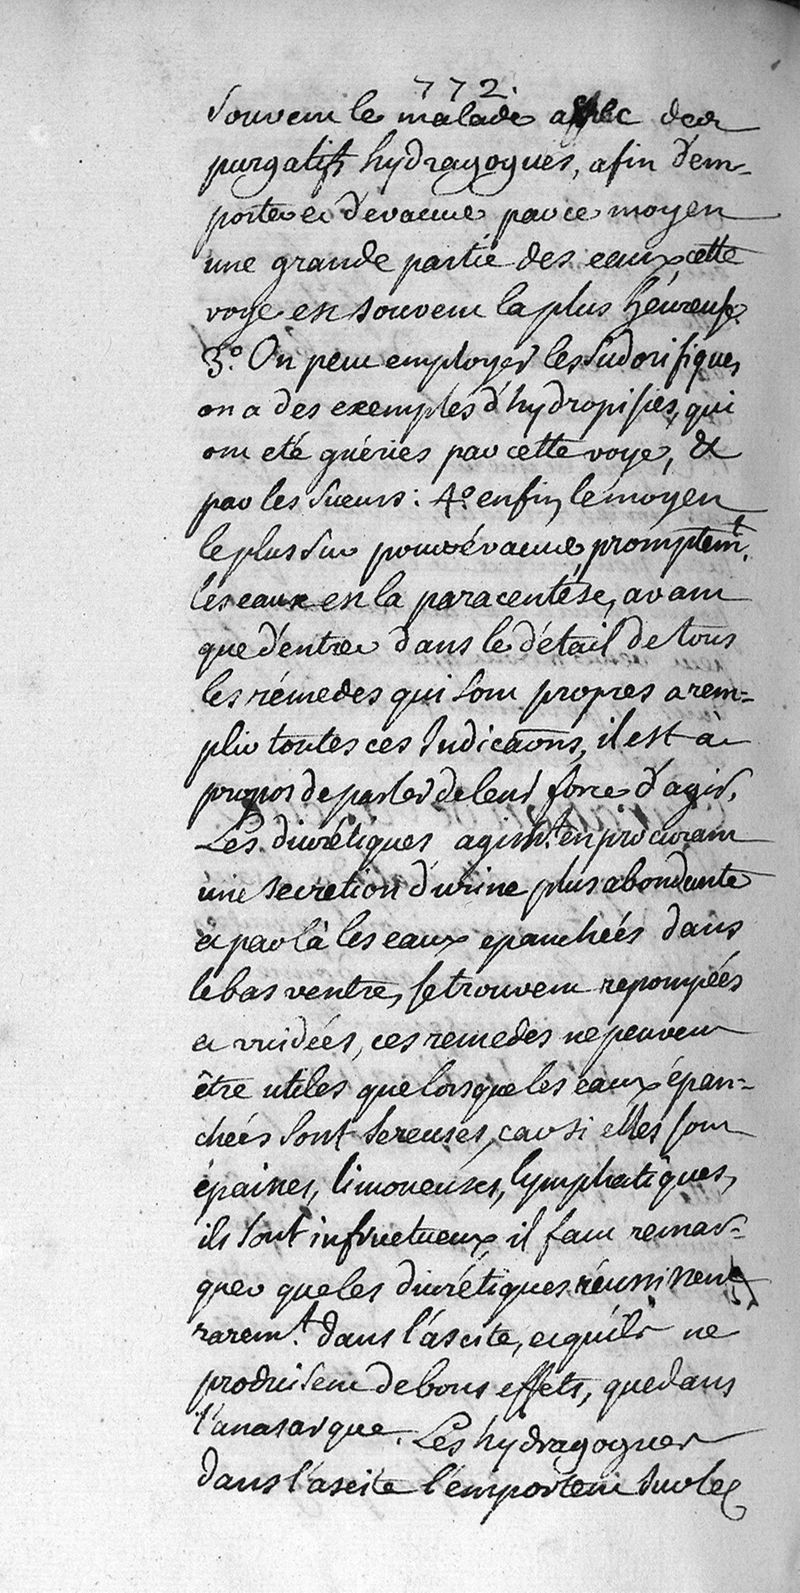 772.
souvent le malade avec des
purgatifs hydragogues, afin d'em-
porter et d'evacuer par ce moyen
une grande partie des eaux, cette
voye est souvent la plus héureuse.
3.° On peut employer les sudorifiques,
on a des exemples d'hydropisies, qui
ont eté guéries par cette voye, &
par les sueurs: 4.° enfin, le moyen
le plus sur pour évacuer promptemt.
les eaux est la paracentése, avant
que d'entrer dans le détail de tous
les rémedes qui sont propres a rem-
plir toutes ces Indicaons, il est à
propos de parler de leur force d'agir.
Les diurétiques agisst. en procurant
une secretion d'urine plus abondante
et par là les eaux epanchées dans
le bas ventre, se trouvent repompées
et vuidées, ces remedes ne peuvent
être utiles que lorsque les eaux épan-
chées sont sereuses, car si elles sont
épaisses, limoneuses, lymphatiques,
ils sont infructueux, il faut remar-
quer que les diurétiques réussissent
rarem.t dans l'ascite, et qu'ils ne
produisent de bons effets, que dans
l'anasarque. Les hydragogues
dans l'ascite l'emportent sur les